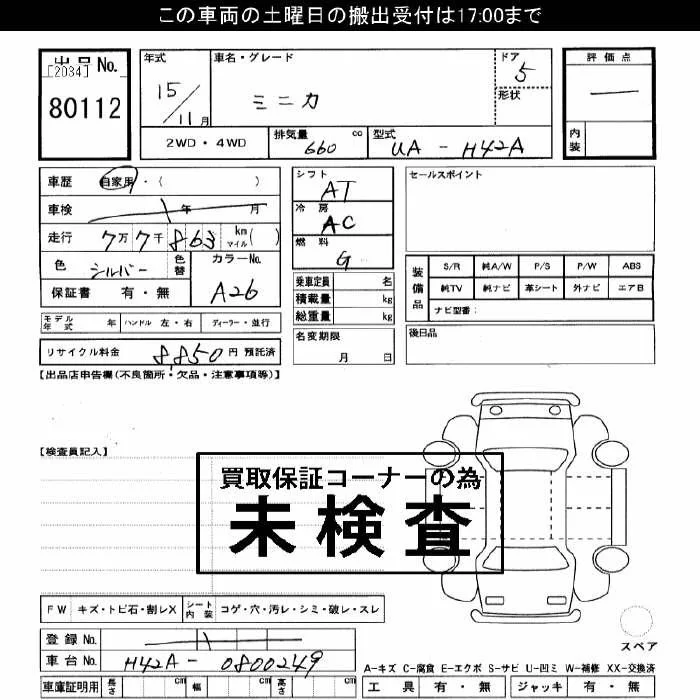 この車両の土曜日の搬出受付は17:00まで
出品 No.
[2034]
80112
年式
15/11月
車名・グレード
ミニカ
ドア
5
形状
評価点
―
内装
2WD・4WD
排気量 cc
660
型式
UA - H42A
車歴 自家用・( )
車検 年 月
走行 7万7千863 km マイル( )
色 シルバー 色替
カラーNo.
A26
保証書 有・無
モデル年式 年 ハンドル 左・右 ディーラー・並行
リサイクル料金 8850円 預託済
シフト
AT
冷房
AC
燃料
G
乗車定員 名
積載量 kg
総重量 kg
名変期限
月 日
セールスポイント
装備品
S/R 純A/W P/S P/W ABS
純TV 純ナビ 革シート 外ナビ エアB
ナビ型番:
後日品
【出品店申告欄(不良箇所・欠品・注意事項等)】
【検査員記入】
買取保証コーナーの為
未検査
FW キズ・トビ石・割レX シート内装 コゲ・穴・汚レ・シミ・破レ・スレ
登録 No.
車台 No. H42A - 0800249
車庫証明用 長さ cm 幅 cm 高さ cm
スペア
A-キズ C-腐食 E-エクボ S-サビ U-凹ミ W-補修 XX-交換済
工具 有・無 ジャッキ 有・無